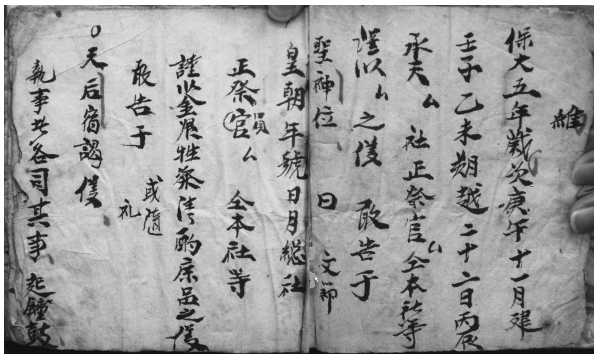 維
保大五年歲次庚午十一月建
壬子乙未朔越二十六日丙辰
承天厶社正祭官厶仝本社等
謹以厶之儀 敢告于
聖神位 曰 文節
皇朝年號日月總社
正祭官員厶 仝本社等
謹以金銀牲粢清酌庶品之儀
敢告于 或隨礼
○天后宿謁儀
執事者各司其事 起鐘鼓